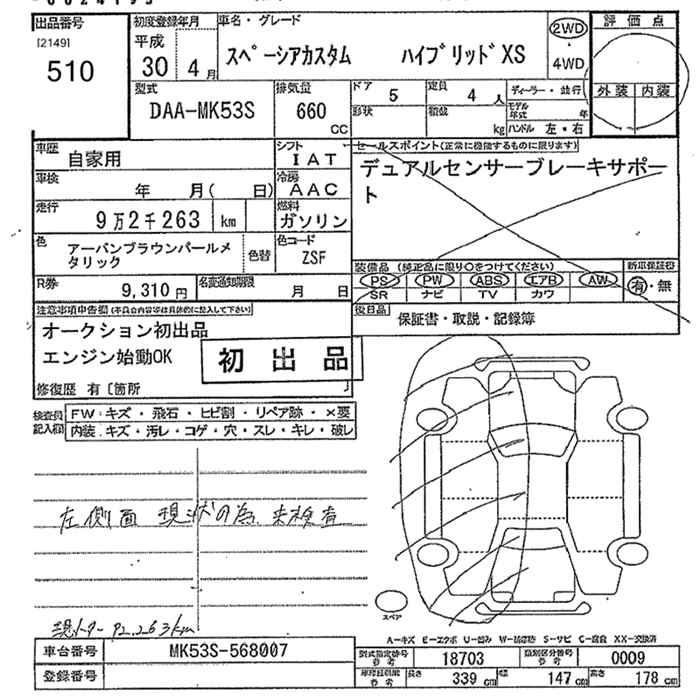 出品番号
[2149]
510
初度登録年月
平成
30年 4月
車名・グレード
スペーシアカスタム ハイブリッドXS
2WD
4WD
評価点
外装 内装
型式
DAA-MK53S
排気量
660
CC
ドア
5
定員
4人
形状
積載
kg
ディーラー・並行
モデル年式 年
ハンドル 左・右
車歴
自家用
シフト
IAT
車検
年 月( 日)
冷房
AAC
走行
9万2千263 km
燃料
ガソリン
色
アーバンブラウンパールメタリック
色替
色コード
ZSF
R券
9,310円
名変通知期限
月 日
セールスポイント(正常に機能するものに限ります)
デュアルセンサーブレーキサポー
ト
装備品 (純正品に限り○をつけてください)
新車保証書
PS PW ABS エアB AW
有・無
SR ナビ TV カワ
後日品
保証書・取説・記録簿
注意事項申告欄(不具合内容等は具体的に記入して下さい)
オークション初出品
エンジン始動OK
初出品
修復歴 有 [箇所
検査員
記入欄
FW:キズ・飛石・ヒビ割・リペア跡・×要
内装:キズ・汚レ・コゲ・穴・スレ・キレ・破レ
左側面 現状の為、未検査
スペア
現メーター 92,263km
A-キズ E-エクボ U-凹み W-補修跡 S-サビ C-腐食 XX-交換済
車台番号
MK53S-568007
登録番号
型式指定番号
参考
18703
類別区分番号
参考
0009
長さ
339 cm
幅
147 cm
高さ
178 cm